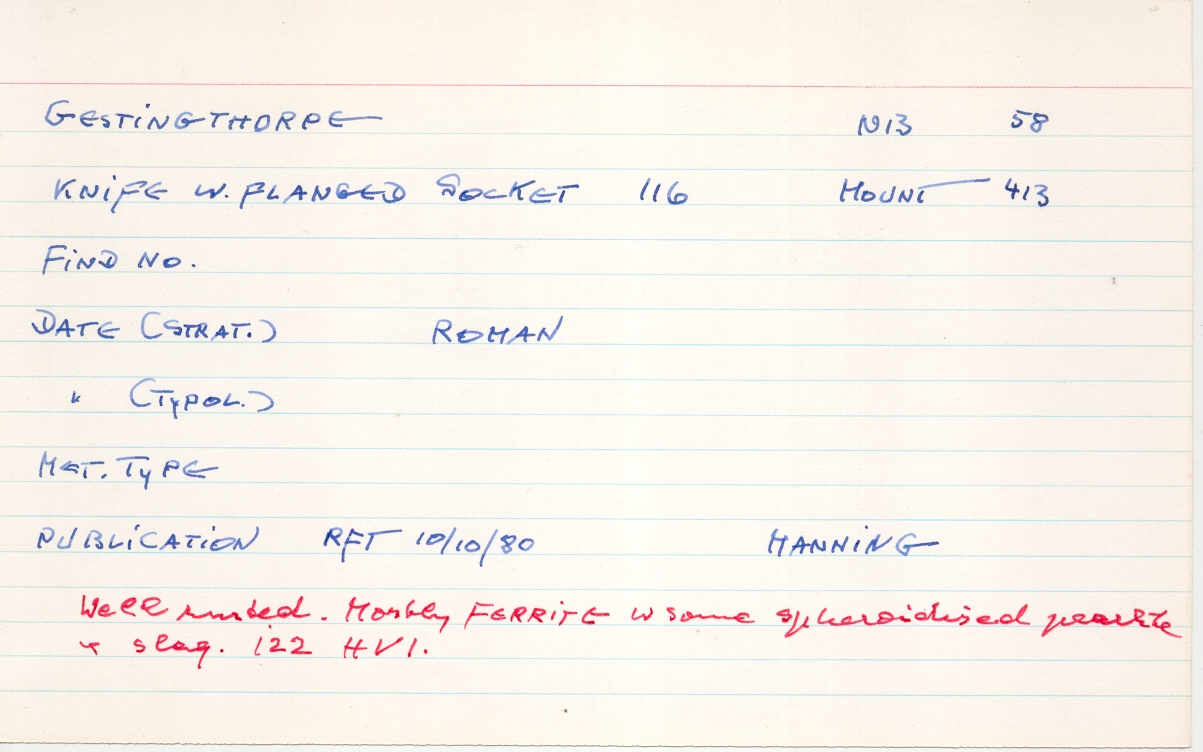 GESTINGTHORPE N13 58
KNIFE W. FLANGED SOCKET 116 MOUNT 413
FIND NO.
DATE (STRAT.) ROMAN
" (TYPOL.)
MET. TYPE
PUBLICATION RFT 10/10/80 MANNING
Well rusted. Mostly FERRITE w some spheroidised pearlite
+ slag. 122 HV1.